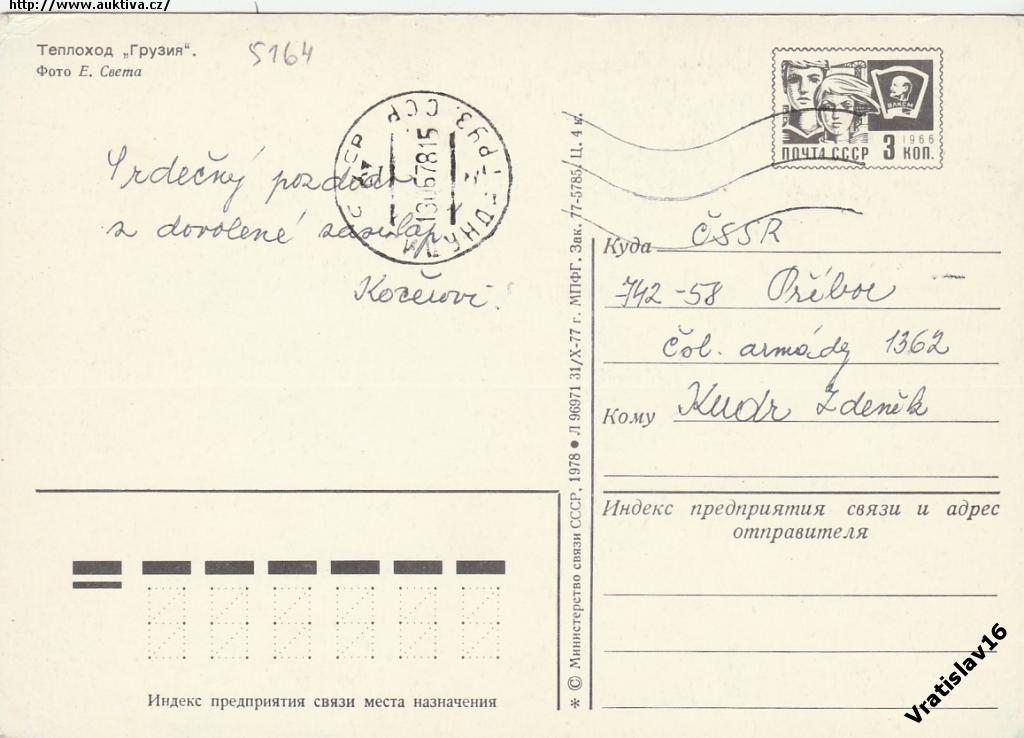 http://www.auktiva.cz/
Теплоход „Грузия“.
Фото Е. Света
5164
ВЛКСМ
1966
ПОЧТА СССР 3 КОП.
13067815
Srdečný pozdrav
z dovolené zasílají
Kočeiovi.
Куда ČSSR
742-58 Příbor
Čsl. armády 1362
Кому Kudr Zdeněk
Индекс предприятия связи и адрес
отправителя
Индекс предприятия связи места назначения
* © Министерство связи СССР, 1978 ● Л 96971 31/X-77 г. МПФГ. Зак. 77-5785. Ц. 4 к.
Vratislav16